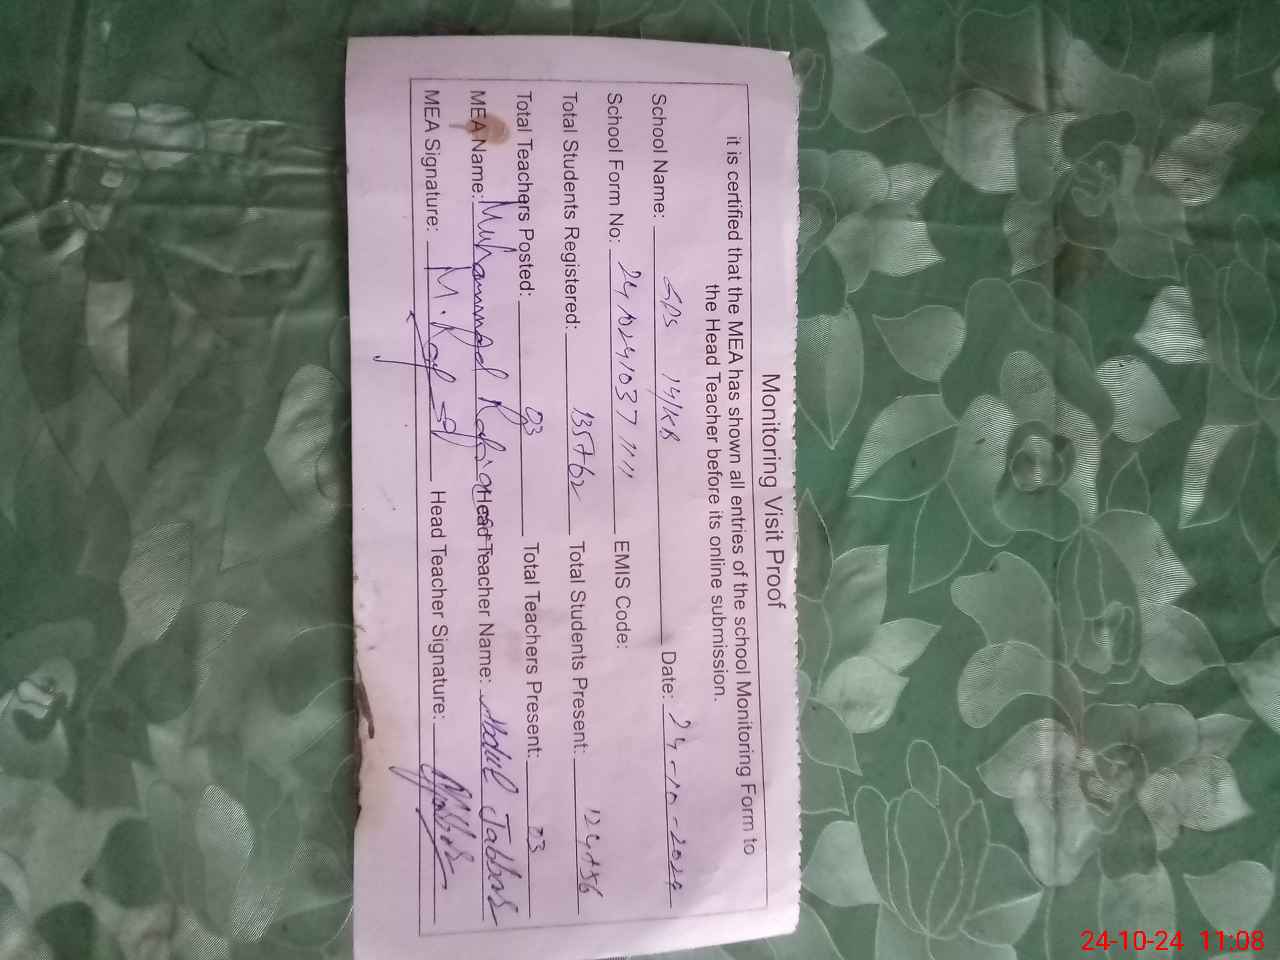 Monitoring Visit Proof
it is certified that the MEA has shown all entries of the school Monitoring Form to
the Head Teacher before its online submission.
School Name: GPS 14/KB Date: 24-10-2024
School Form No: EMIS Code:
Total Students Registered: 135+62 Total Students Present:
Total Teachers Posted: 03 Total Teachers Present: 03
MEA Name: Muhammad Rafiq Head Teacher Name: Abdul Jabbar
MEA Signature: Head Teacher Signature:
24-10-24 11:08